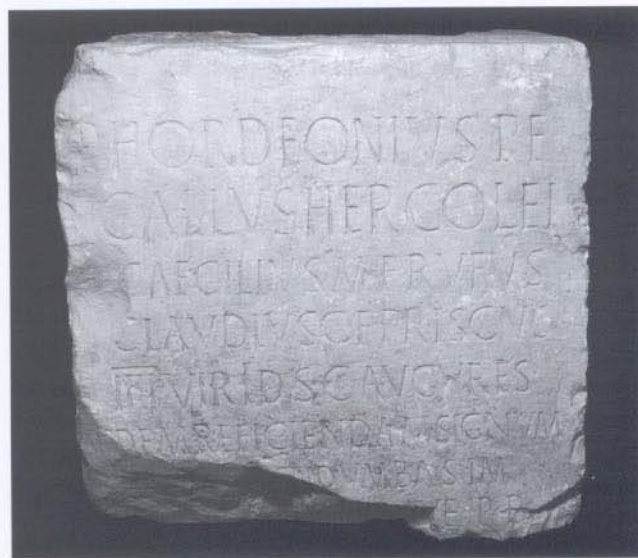 P HORDEONIVS P F
GALLVS HERCOLEI
CAECILIVS M F RVFVS
CLAVDIVS Q F PRISCVS
IIIIVIR I D S C AVGVRES
DEM REFICIENDAM SIGNVM
NDVM BASIM